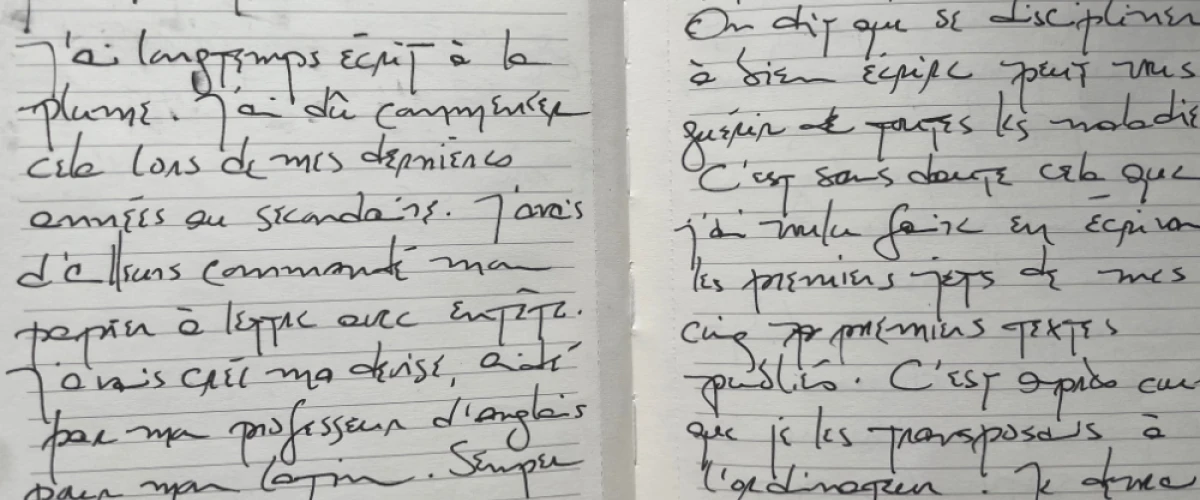 J'ai longtemps écrit à la
plume. J'ai dû commencer
cela lors de mes dernières
années au secondaire. J'avais
d'ailleurs commandé mon
papier à lettre avec entête.
J'avais créé ma devise, aidé
par ma professeur d'anglais
pour mon latin. Semper
On dit que se discipliner
à bien écrire peut vous
guérir de toutes les maladie
C'est sans doute cela que
j'ai voulu faire en écrivan
les premiers jets de mes
cinq premiers textes
publiés. C'est après
que je les transposais à
l'ordinateur. Je